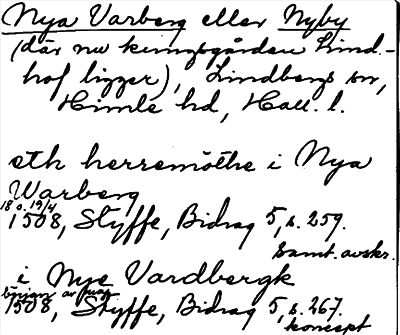 Nya Varberg eller Nyby
(där nu kungsgården Lind-
hof ligger), Lindbergs sn,
Himle hd, Hall. l.
eth herremöthe i Nya
Warberg
18 o. 19/4
1508, Styffe, Bidrag 5, s. 259.
samt. avskr.
i Nye Vardbergk
början av
1508, Styffe, Bidrag 5, s. 267.
koncept